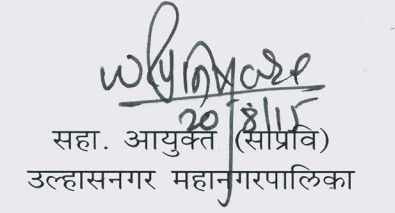 20/8/15
सहा. आयुक्त (साप्रवि)
उल्हासनगर महानगरपालिका